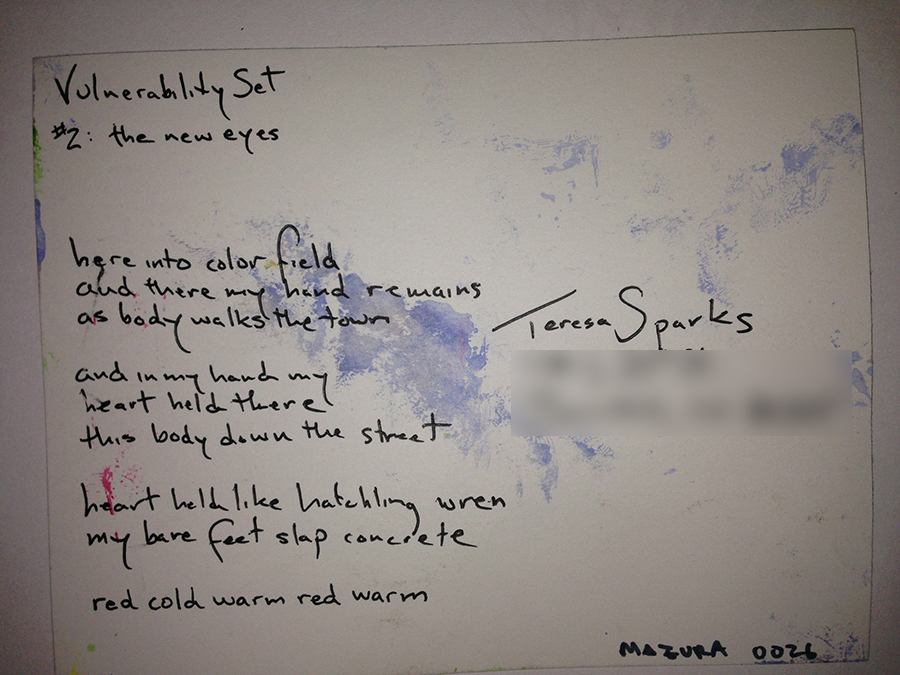 Vulnerability Set
#2: the new eyes
here into color field
and there my hand remains
as body walks the town
and in my hand my
heart held there
this body down the street
heart held like hatchling wren
my bare feet slap concrete
red cold warm red warm
Teresa Sparks
MAZURA 0026